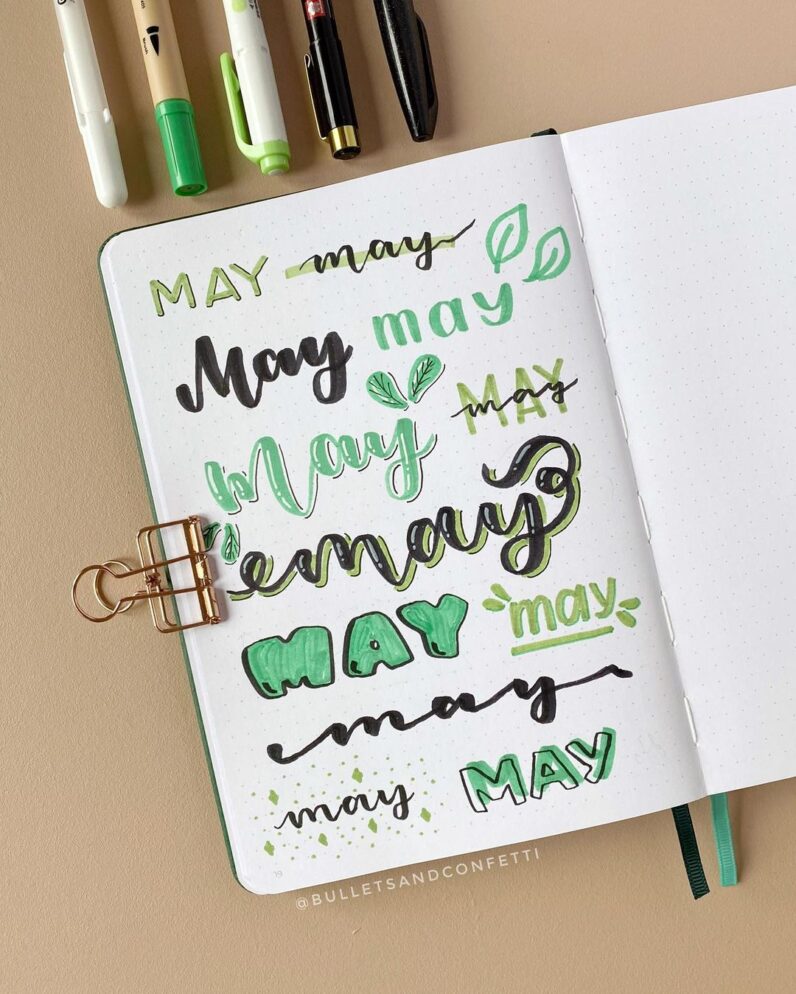 MAY may
May may
MAY may
May
may
MAY may
may
may MAY
19
@BULLETSANDCONFETTI